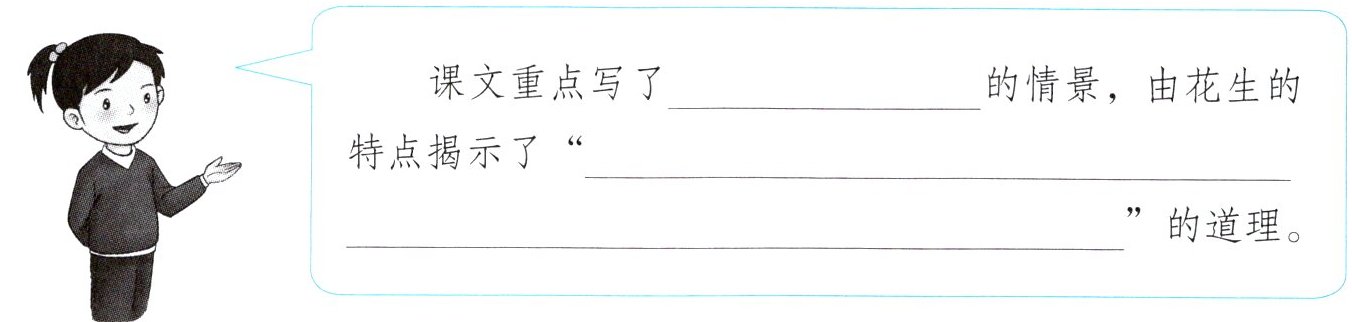 课文重点写了________________的情景，由花生的
特点揭示了“____________________________________
________________________________________”的道理。